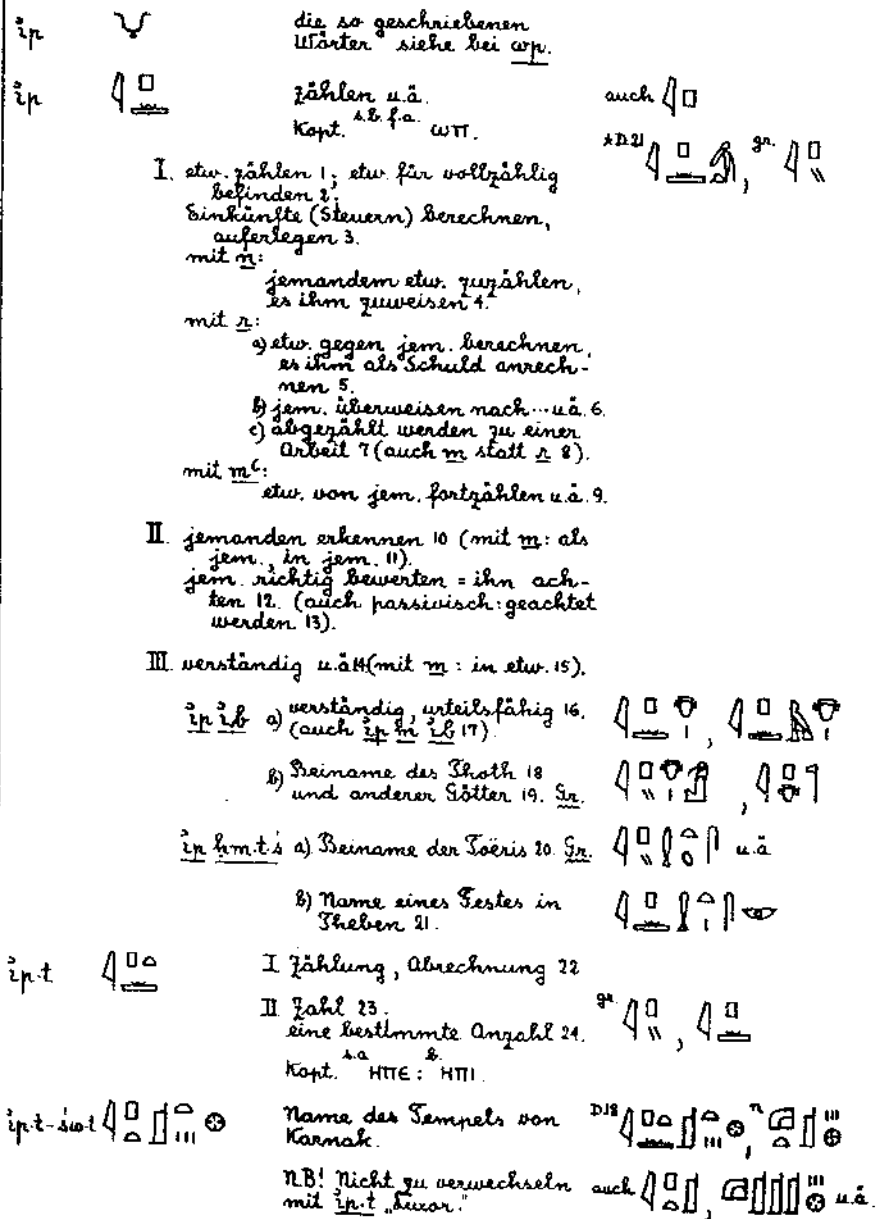 ı͗p die so geschriebenen
Wörter siehe bei wp.
ı͗p 𓇋𓊪𓏠 zählen u.ä. auch 𓇋𓊪
Kopt. s.b.f.a. ⲱⲡ. *D.21 gr.
I. etw. zählen 1; etw. für vollzählig
befinden 2;
Einkünfte (Steuern) berechnen,
auferlegen 3.
mit n:
jemandem etw. zuzählen,
es ihm zuweisen 4.
mit r:
a) etw. gegen jem. berechnen,
es ihm als Schuld anrech-
nen 5.
b) jem. überweisen nach... u.ä. 6.
c) abgezählt werden zu einer
Arbeit 7 (auch m statt r 8).
mit mꜥ:
etw. von jem. fortzählen u.ä. 9.
II. jemanden erkennen 10 (mit m: als
jem., in jem. 11).
jem. richtig bewerten = ihn ach-
ten 12. (auch passivisch: geachtet
werden 13).
III. verständig u.ä 14 (mit m: in etw. 15).
ı͗p ı͗b a) verständig, urteilsfähig 16.
(auch ı͗p m ı͗b 17).
b) Beiname des Thoth 18
und anderer Götter 19. Gr.
ı͗p ḥm.t.ś a) Beiname der Toëris 20. Gr. u.ä
b) Name eines Festes in
Theben 21.
ı͗p.t I Zählung, Abrechnung 22
II Zahl 23. gr.
eine bestimmte Anzahl 24.
Kopt. s.a ⲏⲡⲉ: b. ⲏⲡⲓ.
ı͗p.t-św.t 𓇋𓊪𓏏𓊨𓏏𓏥𓊖 Name des Tempels von D.18 n
Karnak.
N.B! Nicht zu verwechseln auch u.ä.
mit ı͗p.t „Luxor."